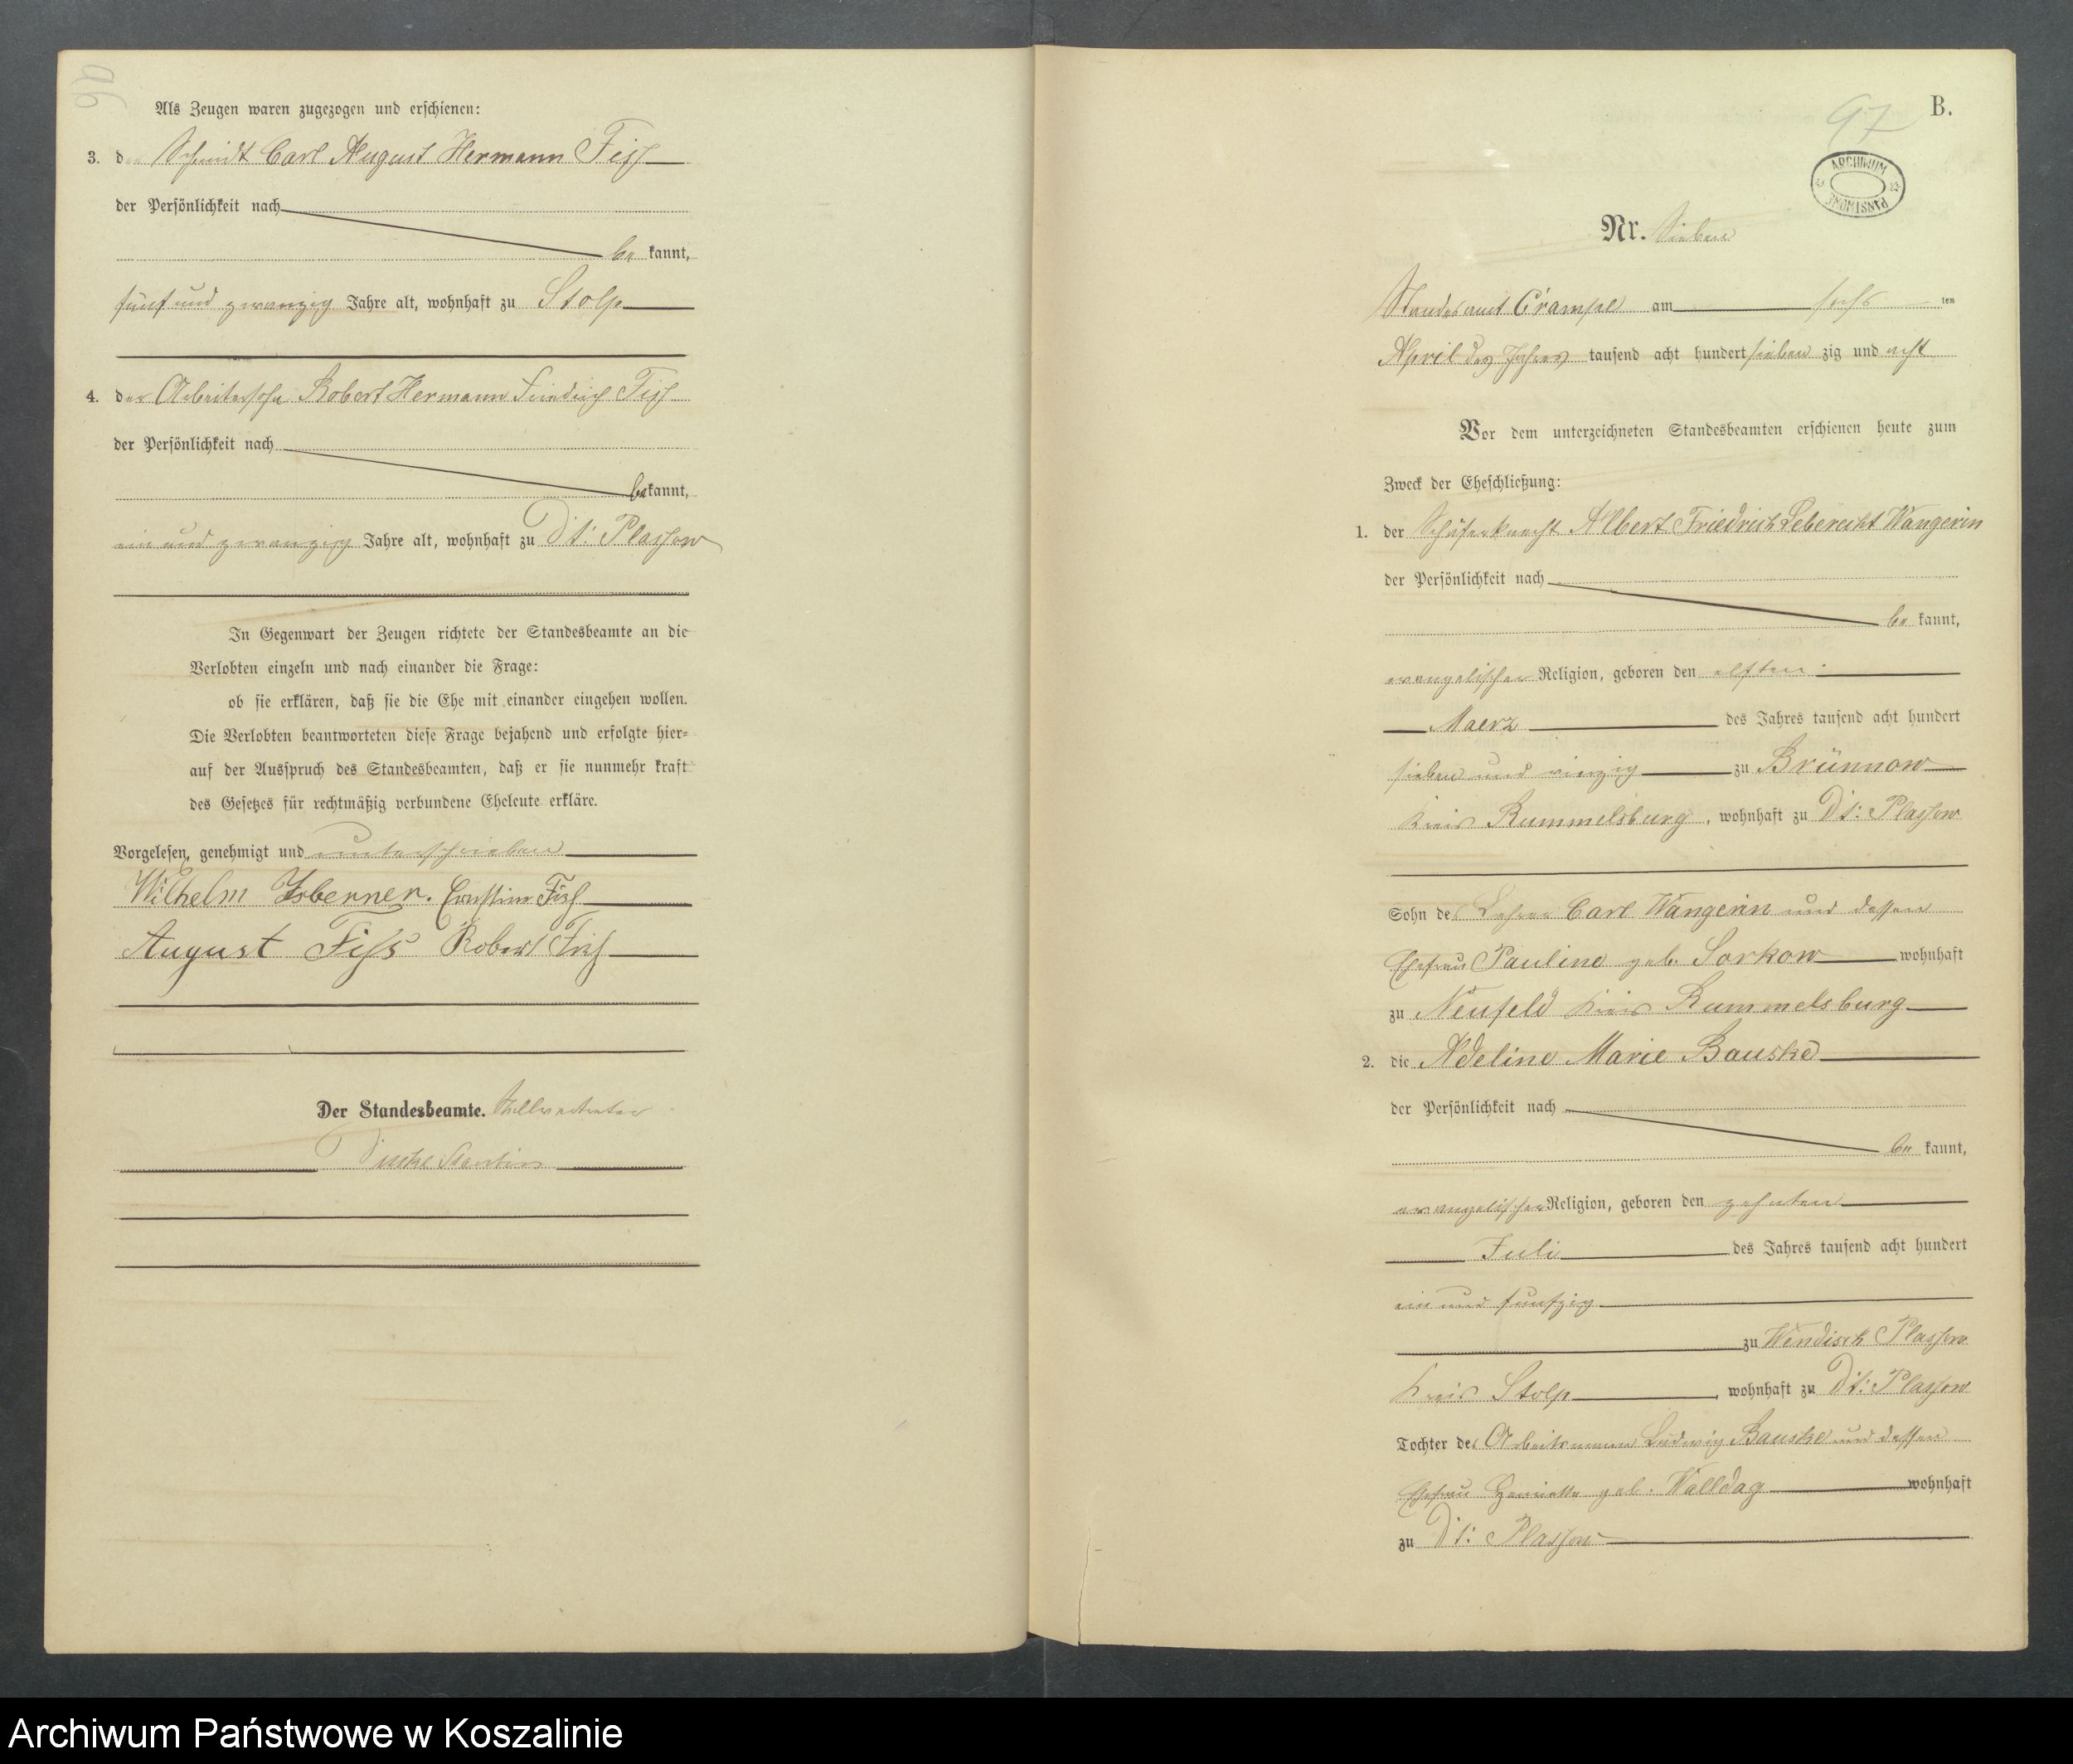 96
Als Zeugen waren zugezogen und erschienen:
3. der Schmidt Carl August Hermann Fiss
der Persönlichkeit nach
be kannt,
fünf und zwanzig Jahre alt, wohnhaft zu Stolp
4. der Arbeitersohn Robert Hermann Friedrich Fiss
der Persönlichkeit nach
bekannt,
ein und zwanzig Jahre alt, wohnhaft zu Dt: Plassow
In Gegenwart der Zeugen richtete der Standesbeamte an die
Verlobten einzeln und nach einander die Frage:
ob sie erklären, daß sie die Ehe mit einander eingehen wollen.
Die Verlobten beantworteten diese Frage bejahend und erfolgte hier-
auf der Ausspruch des Standesbeamten, daß er sie nunmehr kraft
des Gesetzes für rechtmäßig verbundene Eheleute erkläre.
Vorgelesen, genehmigt und unterschrieben
Wilhelm Isberner. Ernstine Fiss
August Fiss Robert Fiss
Der Standesbeamte. Stellvertreter
97
B.
ARCHIWUM PAŃSTWOWE
Nr. Sieben
Standesamt Crampe am sechs ten
April des Jahres tausend acht hundert sieben zig und acht
Vor dem unterzeichneten Standesbeamten erschienen heute zum
Zweck der Eheschließung:
1. der Schäferknecht Albert Friedrich Leberecht Wangerin
der Persönlichkeit nach
be kannt,
evangelischer Religion, geboren den elften
Maerz des Jahres tausend acht hundert
sieben und vierzig zu Brünnow
Kreis Rummelsburg, wohnhaft zu Dt: Plassow
Sohn des Lehrer Carl Wangerin und dessen
Ehefrau Pauline geb. Sorkow wohnhaft
zu Neufeld Kreis Rummelsburg
2. die Adeline Marie Bauske
der Persönlichkeit nach
be kannt,
evangelischer Religion, geboren den zehnten
Juli des Jahres tausend acht hundert
ein und funfzig
zu Wendisch Plassow
Kreis Stolp, wohnhaft zu Dt: Plassow
Tochter des Arbeitsmann Ludwig Bauske und dessen
Ehefrau Henriette geb. Walldag wohnhaft
zu Dt: Plassow
Archiwum Państwowe w Koszalinie